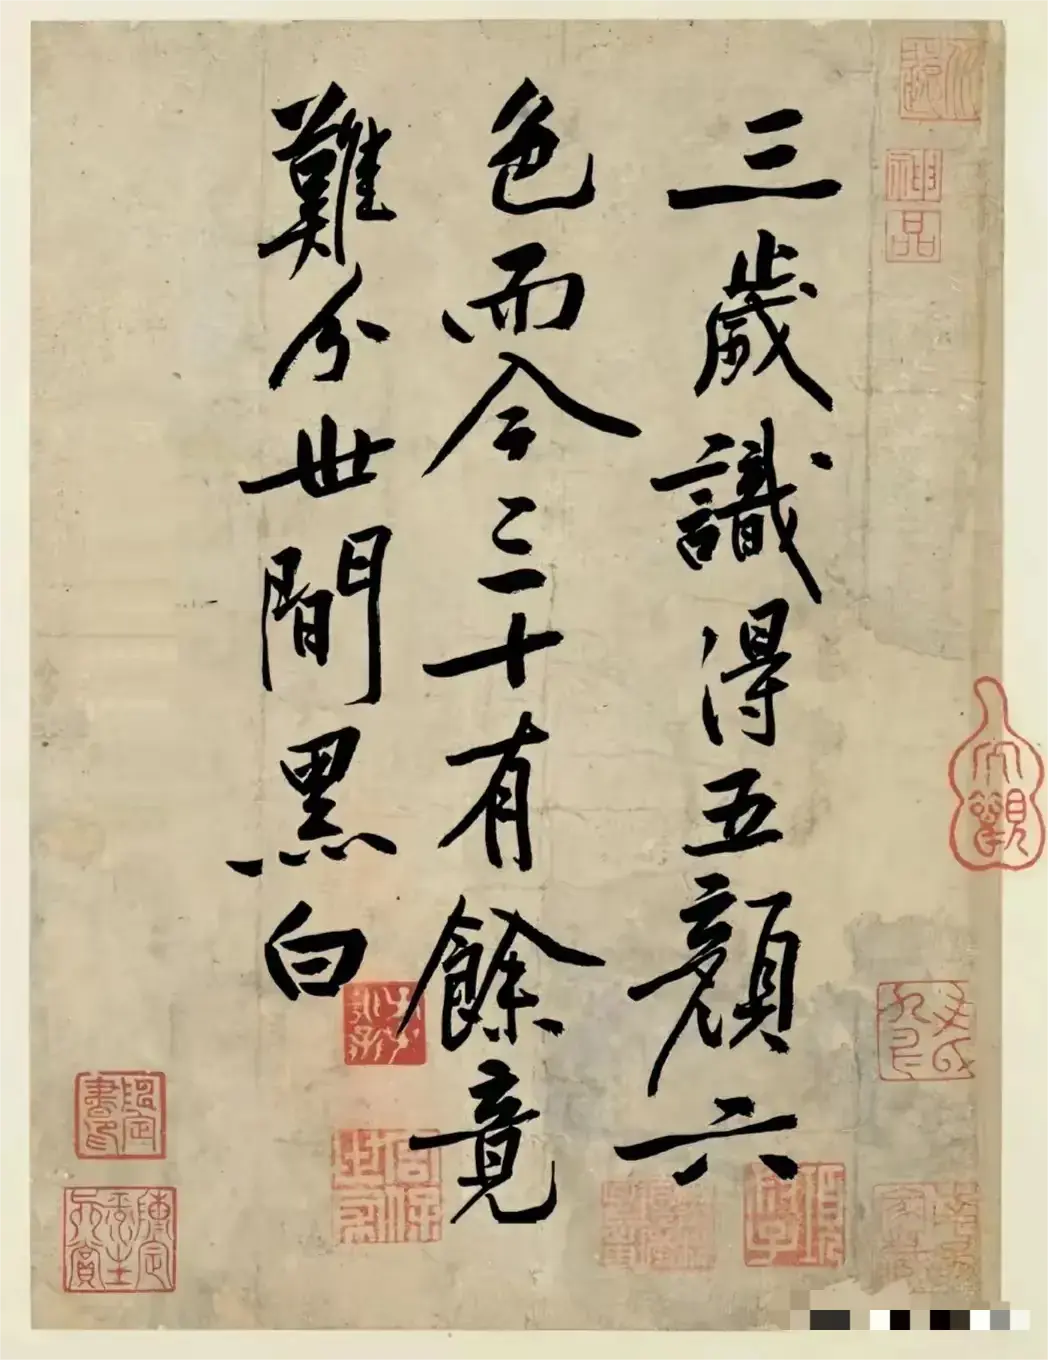 三歲識得五顏六
色而今三十有餘竟
難分世間黑白
神品
大觀